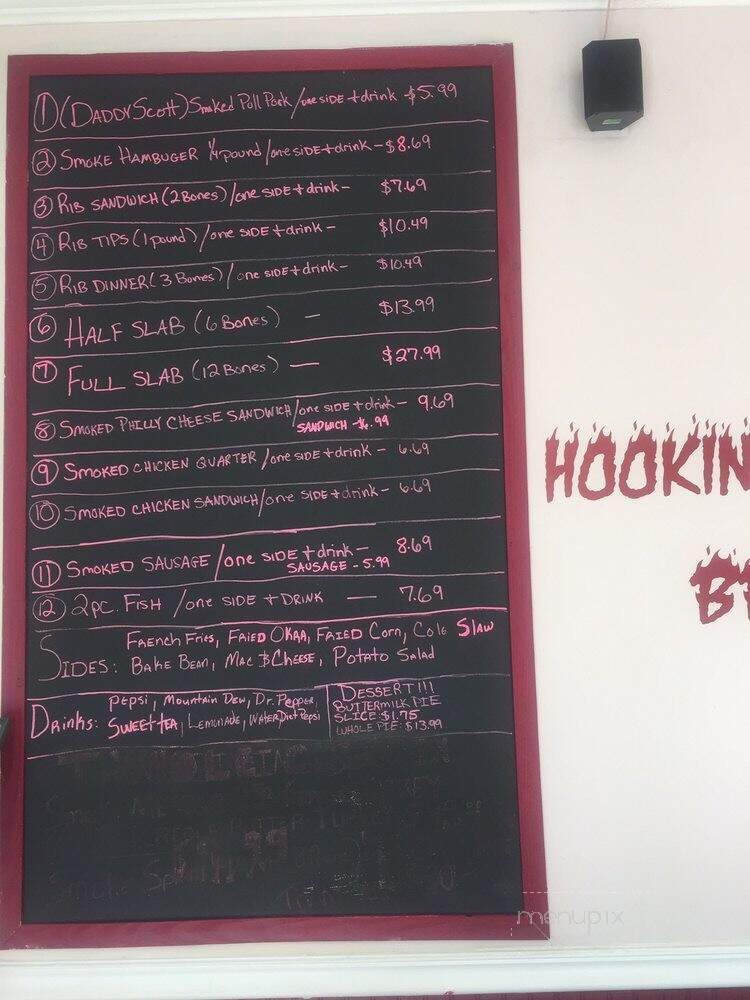 1 (DADDY Scott) Smoked Pull Pork / one SIDE + drink $5.99
2 SMOKE HAMBUGER 1/4 pound / one SIDE + drink - $8.69
3 RIB SANDWICH (2 Bones) / one SIDE + drink - $7.69
4 RIB TIPS (1 pound) / one SIDE + drink - $10.49
5 RIB DINNER (3 Bones) / one SIDE + drink - $10.49
6 HALF SLAB (6 Bones) - $13.99
7 FULL SLAB (12 Bones) - $27.99
8 SMOKED PHILLY CHEESE SANDWICH / one SIDE + drink - 9.69
SANDWICH
9 SMOKED CHICKEN QUARTER / one SIDE + drink - 6.69
10 SMOKED CHICKEN SANDWICH / one SIDE + drink - 6.69
11 SMOKED SAUSAGE / one SIDE + drink - 8.69
SAUSAGE - 5.99
12 2pc. FISH / one SIDE + DRINK - 7.69
FRENCH FRIES, FRIED OKRA, FRIED CORN, Cole Slaw
SIDES: BAKE BEAN, MAC & CHEESE, POTATO SALAD
PEPSI, MOUNTAIN DEW, DR. PEPPER,
Drinks: SWEET TEA, LEMONADE, WATER, Diet Pepsi
DESSERT!!!
BUTTERMILK PIE
SLICE: $1.75
WHOLE PIE: $13.99
HOOKIN
menupix